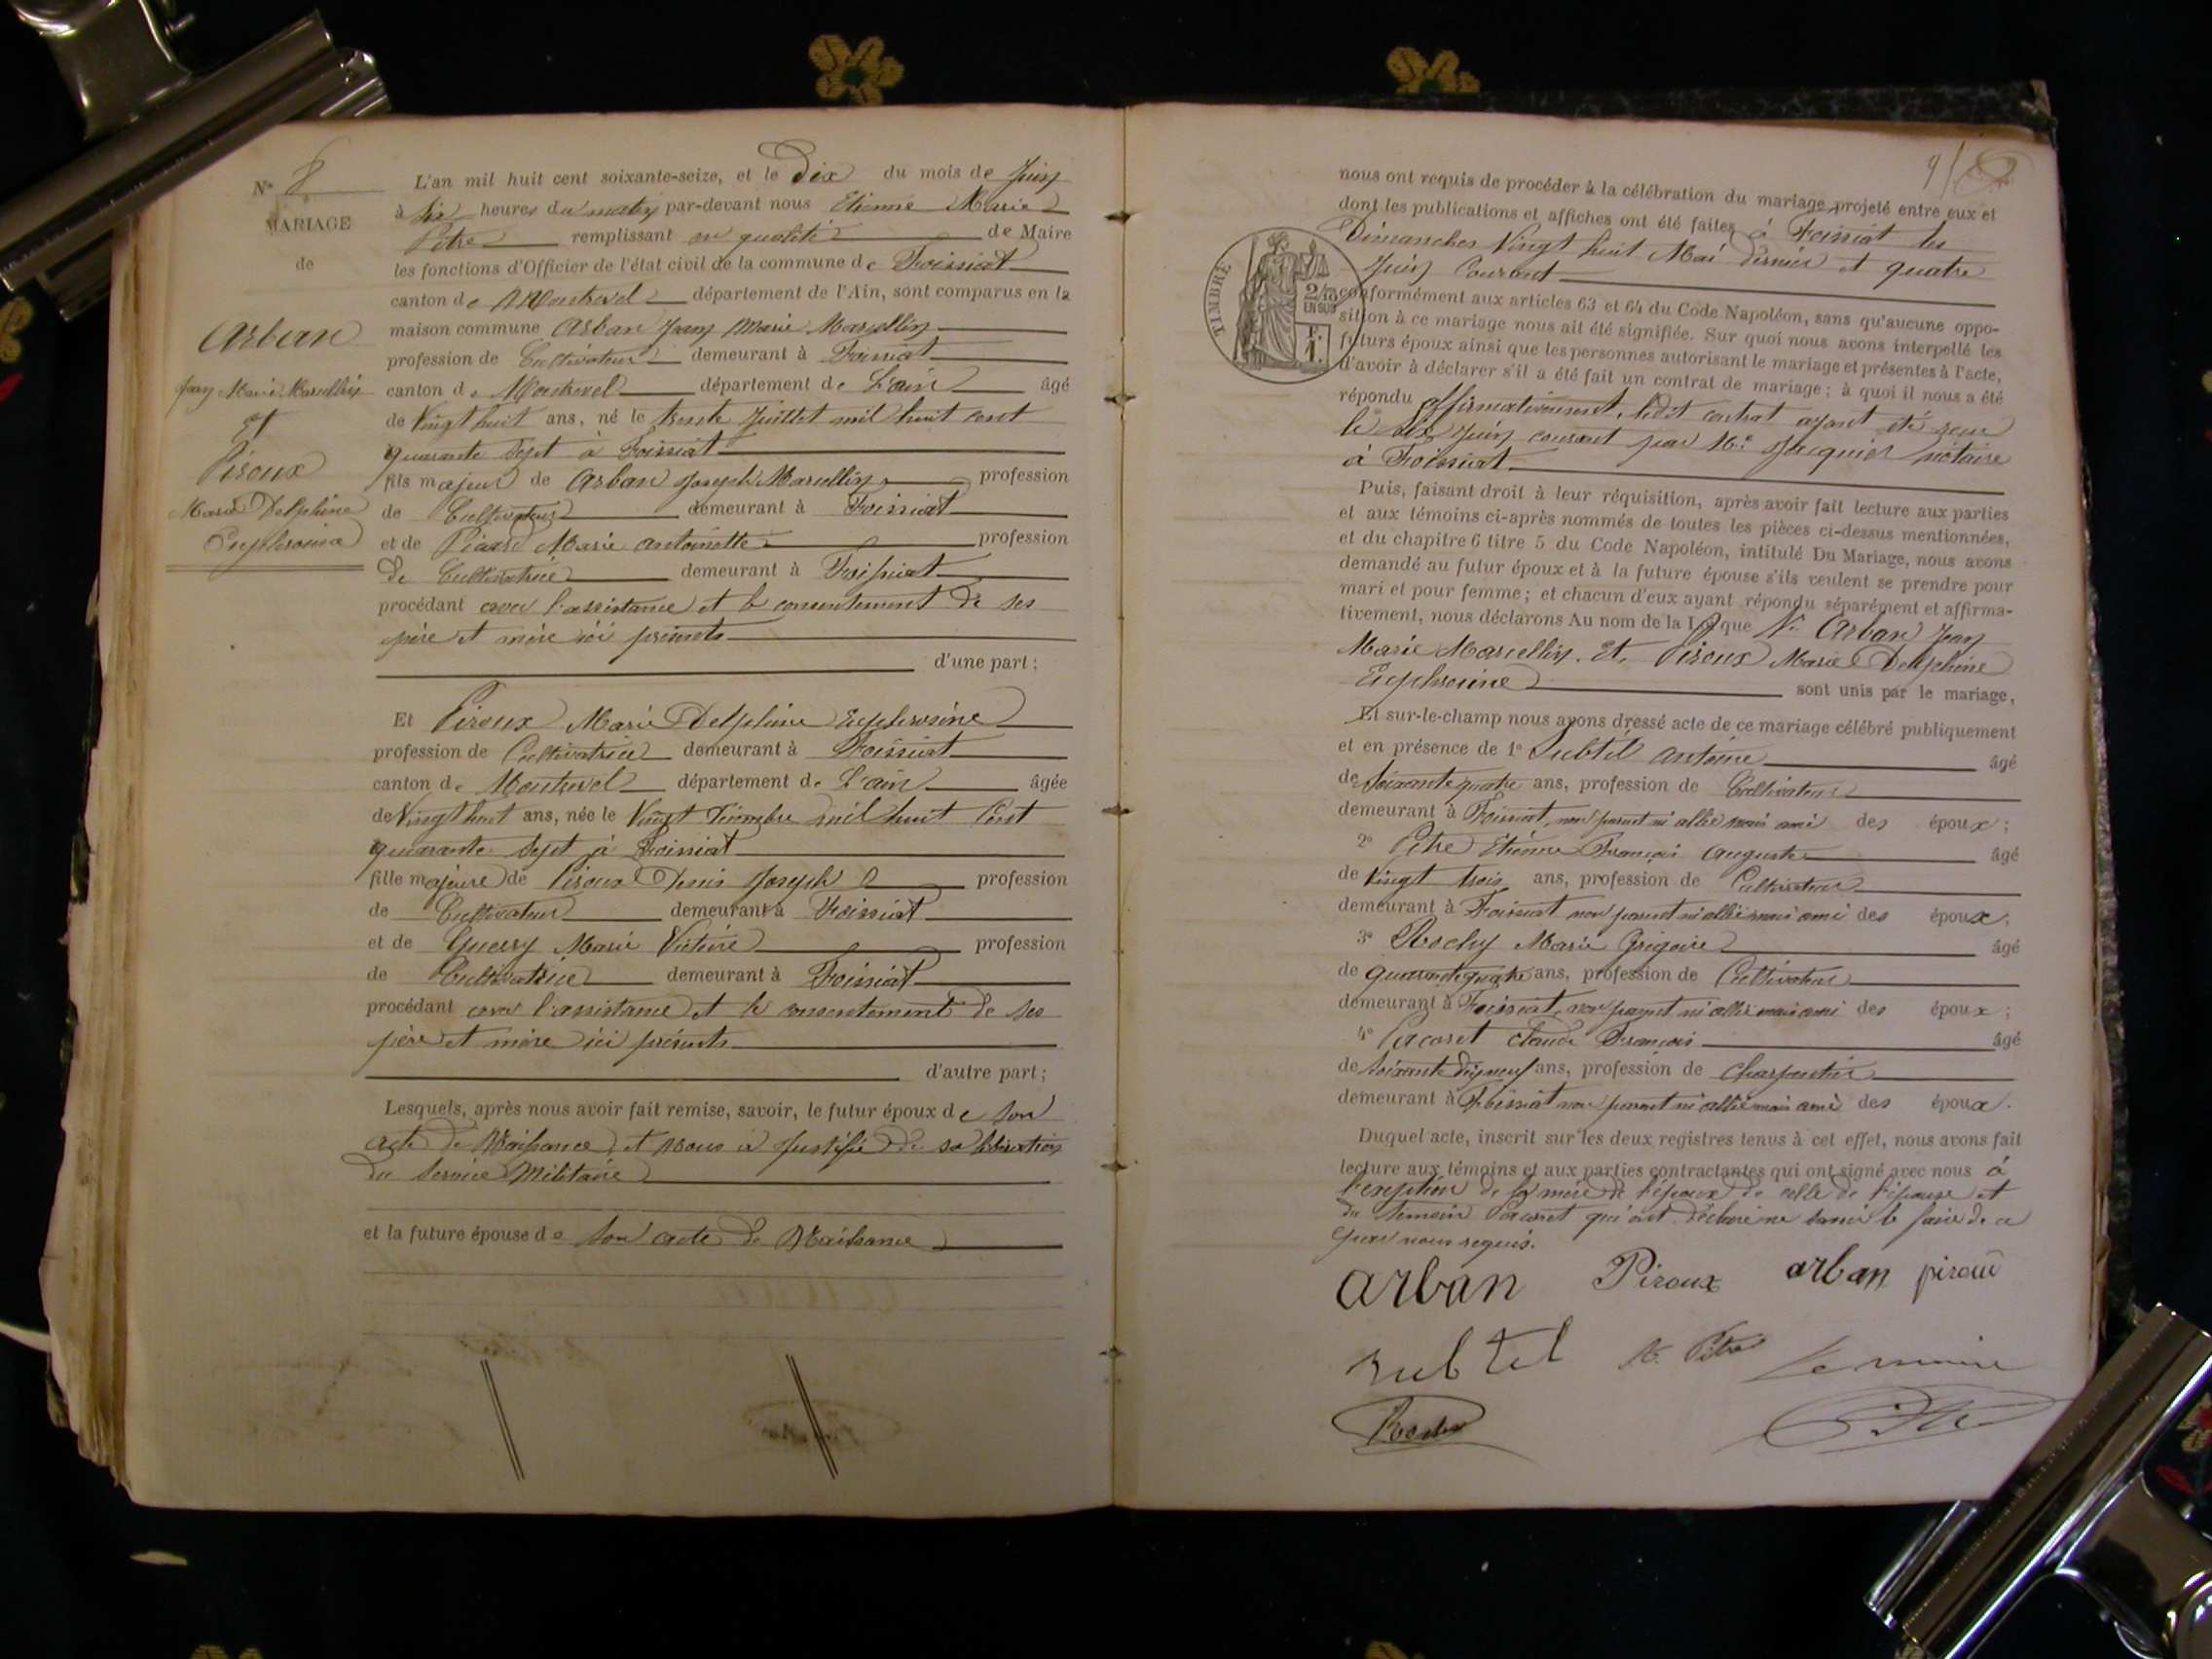 N° 8
MARIAGE
de
Arban
Jean Marie Marcellin
et
Piroux
Marie Delphine
Euphrosine
L'an mil huit cent soixante-seize, et le Dix du mois de Juin
à Six heures du matin par-devant nous Etienne Marie
Pitre remplissant en qualité de Maire
les fonctions d'Officier de l'état civil de la commune de Foissiat
canton de Montrevel département de l'Ain, sont comparus en la
maison commune Arban Jean Marie Marcellin
profession de Cultivateur demeurant à Foissiat
canton de Montrevel département de L'ain âgé
de Vingt huit ans, né le trente Juillet mil huit cent
quarante Sept à Foissiat
fils majeur de Arban Joseph Marcellin profession
de Cultivateur demeurant à Foissiat
et de Marie antoinette profession
de Cultivatrice demeurant à Foissiat
procédant avec l'assistance et le consentement de ses
père et mère ici présents
d'une part ;
Et Piroux Marie Delphine Euphrosine
profession de Cultivatrice demeurant à Foissiat
canton de Montrevel département de L'ain âgée
de Vingt huit ans, née le Vingt Décembre mil huit Cent
quarante Sept à Foissiat
fille majeure de Piroux Denis Joseph profession
de Cultivateur demeurant à Foissiat
et de Guerry Marie Victoire profession
de Cultivatrice demeurant à Foissiat
procédant avec l'assistance et le consentement de ses
père et mère ici présents
d'autre part ;
Lesquels, après nous avoir fait remise, savoir, le futur époux de Son
acte de Naissance et nous a Justifié de sa libération
du Service Militaire
et la future épouse de Son acte de Naissance
nous ont requis de procéder à la célébration du mariage projeté entre eux et
dont les publications et affiches ont été faites à Foissiat les
Dimanches Vingt huit Mai dernier et quatre
Juin Courant
TIMBRE
2/10
EN SUS
F.
1.
conformément aux articles 63 et 64 du Code Napoléon, sans qu'aucune oppo-
sition à ce mariage nous ait été signifiée. Sur quoi nous avons interpellé les
futurs époux ainsi que les personnes autorisant le mariage et présentes à l'acte,
d'avoir à déclarer s'il a été fait un contrat de mariage ; à quoi il nous a été
répondu affirmativement, ledit contrat ayant été reçu
le dix Juin courant par Me Jacquier notaire
à Foissiat
Puis, faisant droit à leur réquisition, après avoir fait lecture aux parties
et aux témoins ci-après nommés de toutes les pièces ci-dessus mentionnées,
et du chapitre 6 titre 5 du Code Napoléon, intitulé Du Mariage, nous avons
demandé au futur époux et à la future épouse s'ils veulent se prendre pour
mari et pour femme ; et chacun d'eux ayant répondu séparément et affirma-
tivement, nous déclarons Au nom de la Loi que Arban Jean
Marie Marcellin. Et. Piroux Marie Delphine
Euphrosine sont unis par le mariage,
Et sur-le-champ nous avons dressé acte de ce mariage célébré publiquement
et en présence de 1° Subtil antoine âgé
de Soixante quatre ans, profession de Cultivateur
demeurant à Foissiat, non parent ni allié mais ami des époux ;
2° Pitre Etienne François auguste âgé
de Vingt trois ans, profession de Cultivateur
demeurant à Foissiat non parent ni allié mais ami des époux ;
3° Rochy Marie Grégoire âgé
de quarante quatre ans, profession de Cultivateur
demeurant à Foissiat, non parent ni allié mais ami des époux ;
4° Pacoret Claude François âgé
de Soixante dix neuf ans, profession de Charpentier
demeurant à Foissiat non parent ni allié mais ami des époux.
Duquel acte, inscrit sur les deux registres tenus à cet effet, nous avons fait
lecture aux témoins et aux parties contractantes qui ont signé avec nous à
l'exeption de la mère de l'époux de celle de l'épouse et
du témoin Pacoret qui ont déclaré ne savoir le faire de ce
par nous requis.
arban Piroux arban piroux
subtil Pitre Le maire
Rochy Pitre